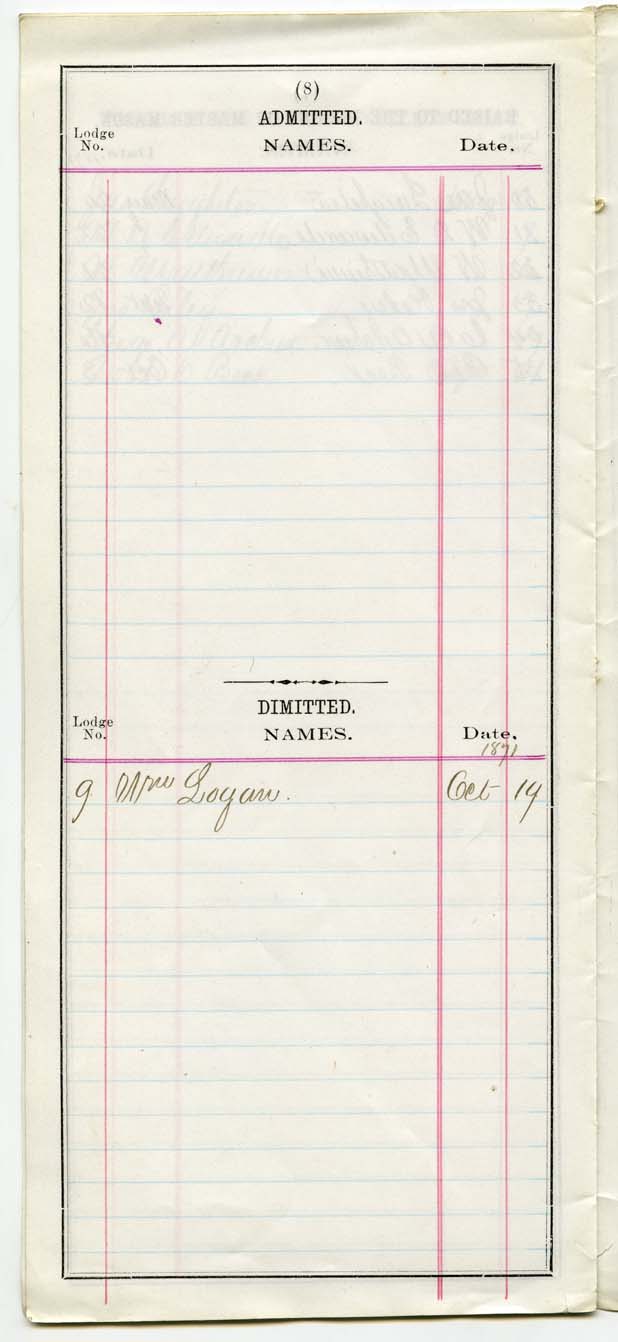 (8)
ADMITTED.
Lodge No. NAMES. Date.
DIMITTED.
Lodge No. NAMES. Date.
1871
9 Wm Logan. Oct 19